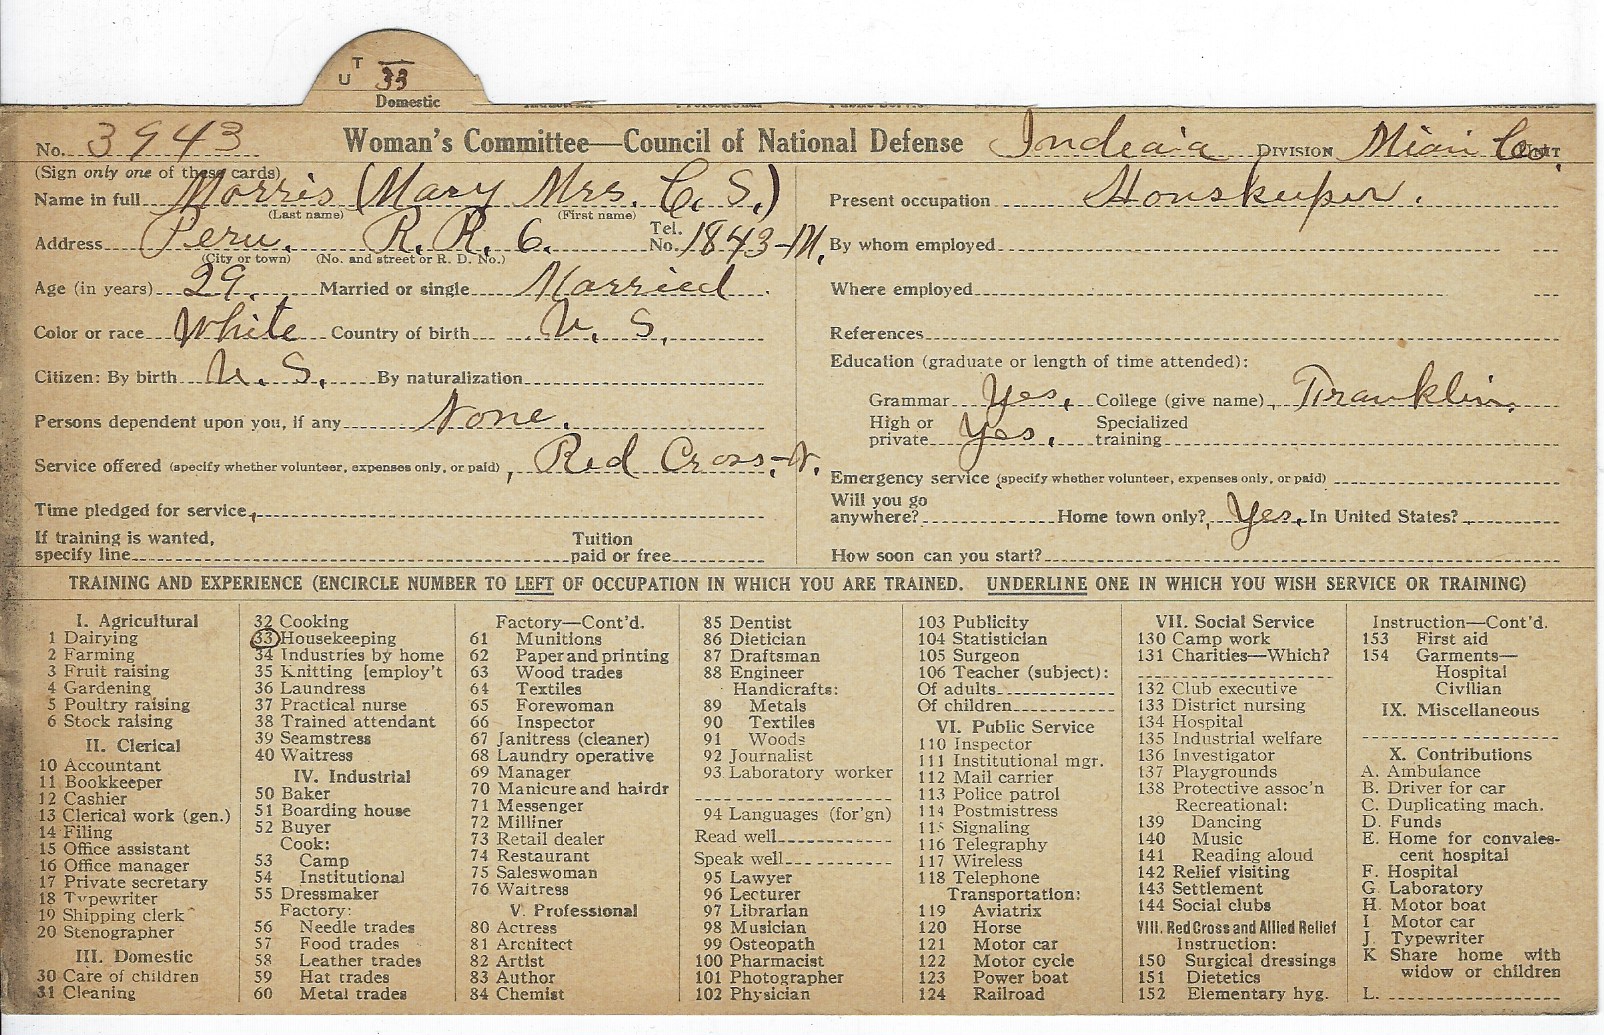 T
U 33
Domestic
No. 3943 Woman's Committee—Council of National Defense Indiaia DIVISION Miair Co. UNIT
(Sign only one of these cards)
Name in full Morris (Mary Mrs. C. S.)
(Last name) (First name)
Address Peru. R. R. 6. Tel. No. 1843-M.
(City or town) (No. and street or R. D. No.)
Age (in years) 29. Married or single Married.
Color or race White Country of birth U. S.
Citizen: By birth U. S. By naturalization
Persons dependent upon you, if any None.
Service offered (specify whether volunteer, expenses only, or paid), Red Cross.-V.
Time pledged for service
If training is wanted, specify line Tuition paid or free
Present occupation Houskeeper.
By whom employed
Where employed
References
Education (graduate or length of time attended):
Grammar Yes. College (give name) Franklin.
High or private Yes. Specialized training
Emergency service (specify whether volunteer, expenses only, or paid)
Will you go anywhere? Home town only? Yes. In United States?
How soon can you start?
TRAINING AND EXPERIENCE (ENCIRCLE NUMBER TO LEFT OF OCCUPATION IN WHICH YOU ARE TRAINED. UNDERLINE ONE IN WHICH YOU WISH SERVICE OR TRAINING)
I. Agricultural
1 Dairying
2 Farming
3 Fruit raising
4 Gardening
5 Poultry raising
6 Stock raising
II. Clerical
10 Accountant
11 Bookkeeper
12 Cashier
13 Clerical work (gen.)
14 Filing
15 Office assistant
16 Office manager
17 Private secretary
18 Typewriter
19 Shipping clerk
20 Stenographer
III. Domestic
30 Care of children
31 Cleaning
32 Cooking
33 Housekeeping
34 Industries by home
35 Knitting [employ't
36 Laundress
37 Practical nurse
38 Trained attendant
39 Seamstress
40 Waitress
IV. Industrial
50 Baker
51 Boarding house
52 Buyer
Cook:
53 Camp
54 Institutional
55 Dressmaker
Factory:
56 Needle trades
57 Food trades
58 Leather trades
59 Hat trades
60 Metal trades
Factory—Cont'd.
61 Munitions
62 Paper and printing
63 Wood trades
64 Textiles
65 Forewoman
66 Inspector
67 Janitress (cleaner)
68 Laundry operative
69 Manager
70 Manicure and hairdr
71 Messenger
72 Milliner
73 Retail dealer
74 Restaurant
75 Saleswoman
76 Waitress
V. Professional
80 Actress
81 Architect
82 Artist
83 Author
84 Chemist
85 Dentist
86 Dietician
87 Draftsman
88 Engineer
Handicrafts:
89 Metals
90 Textiles
91 Woods
92 Journalist
93 Laboratory worker
94 Languages (for'gn)
Read well
Speak well
95 Lawyer
96 Lecturer
97 Librarian
98 Musician
99 Osteopath
100 Pharmacist
101 Photographer
102 Physician
103 Publicity
104 Statistician
105 Surgeon
106 Teacher (subject):
Of adults
Of children
VI. Public Service
110 Inspector
111 Institutional mgr.
112 Mail carrier
113 Police patrol
114 Postmistress
115 Signaling
116 Telegraphy
117 Wireless
118 Telephone
Transportation:
119 Aviatrix
120 Horse
121 Motor car
122 Motor cycle
123 Power boat
124 Railroad
VII. Social Service
130 Camp work
131 Charities—Which?
132 Club executive
133 District nursing
134 Hospital
135 Industrial welfare
136 Investigator
137 Playgrounds
138 Protective assoc'n
Recreational:
139 Dancing
140 Music
141 Reading aloud
142 Relief visiting
143 Settlement
144 Social clubs
VIII. Red Cross and Allied Relief
Instruction:
150 Surgical dressings
151 Dietetics
152 Elementary hyg.
Instruction—Cont'd.
153 First aid
154 Garments—
Hospital
Civilian
IX. Miscellaneous
X. Contributions
A. Ambulance
B. Driver for car
C. Duplicating mach.
D. Funds
E. Home for convales-
cent hospital
F. Hospital
G. Laboratory
H. Motor boat
I Motor car
J. Typewriter
K Share home with
widow or children
L.